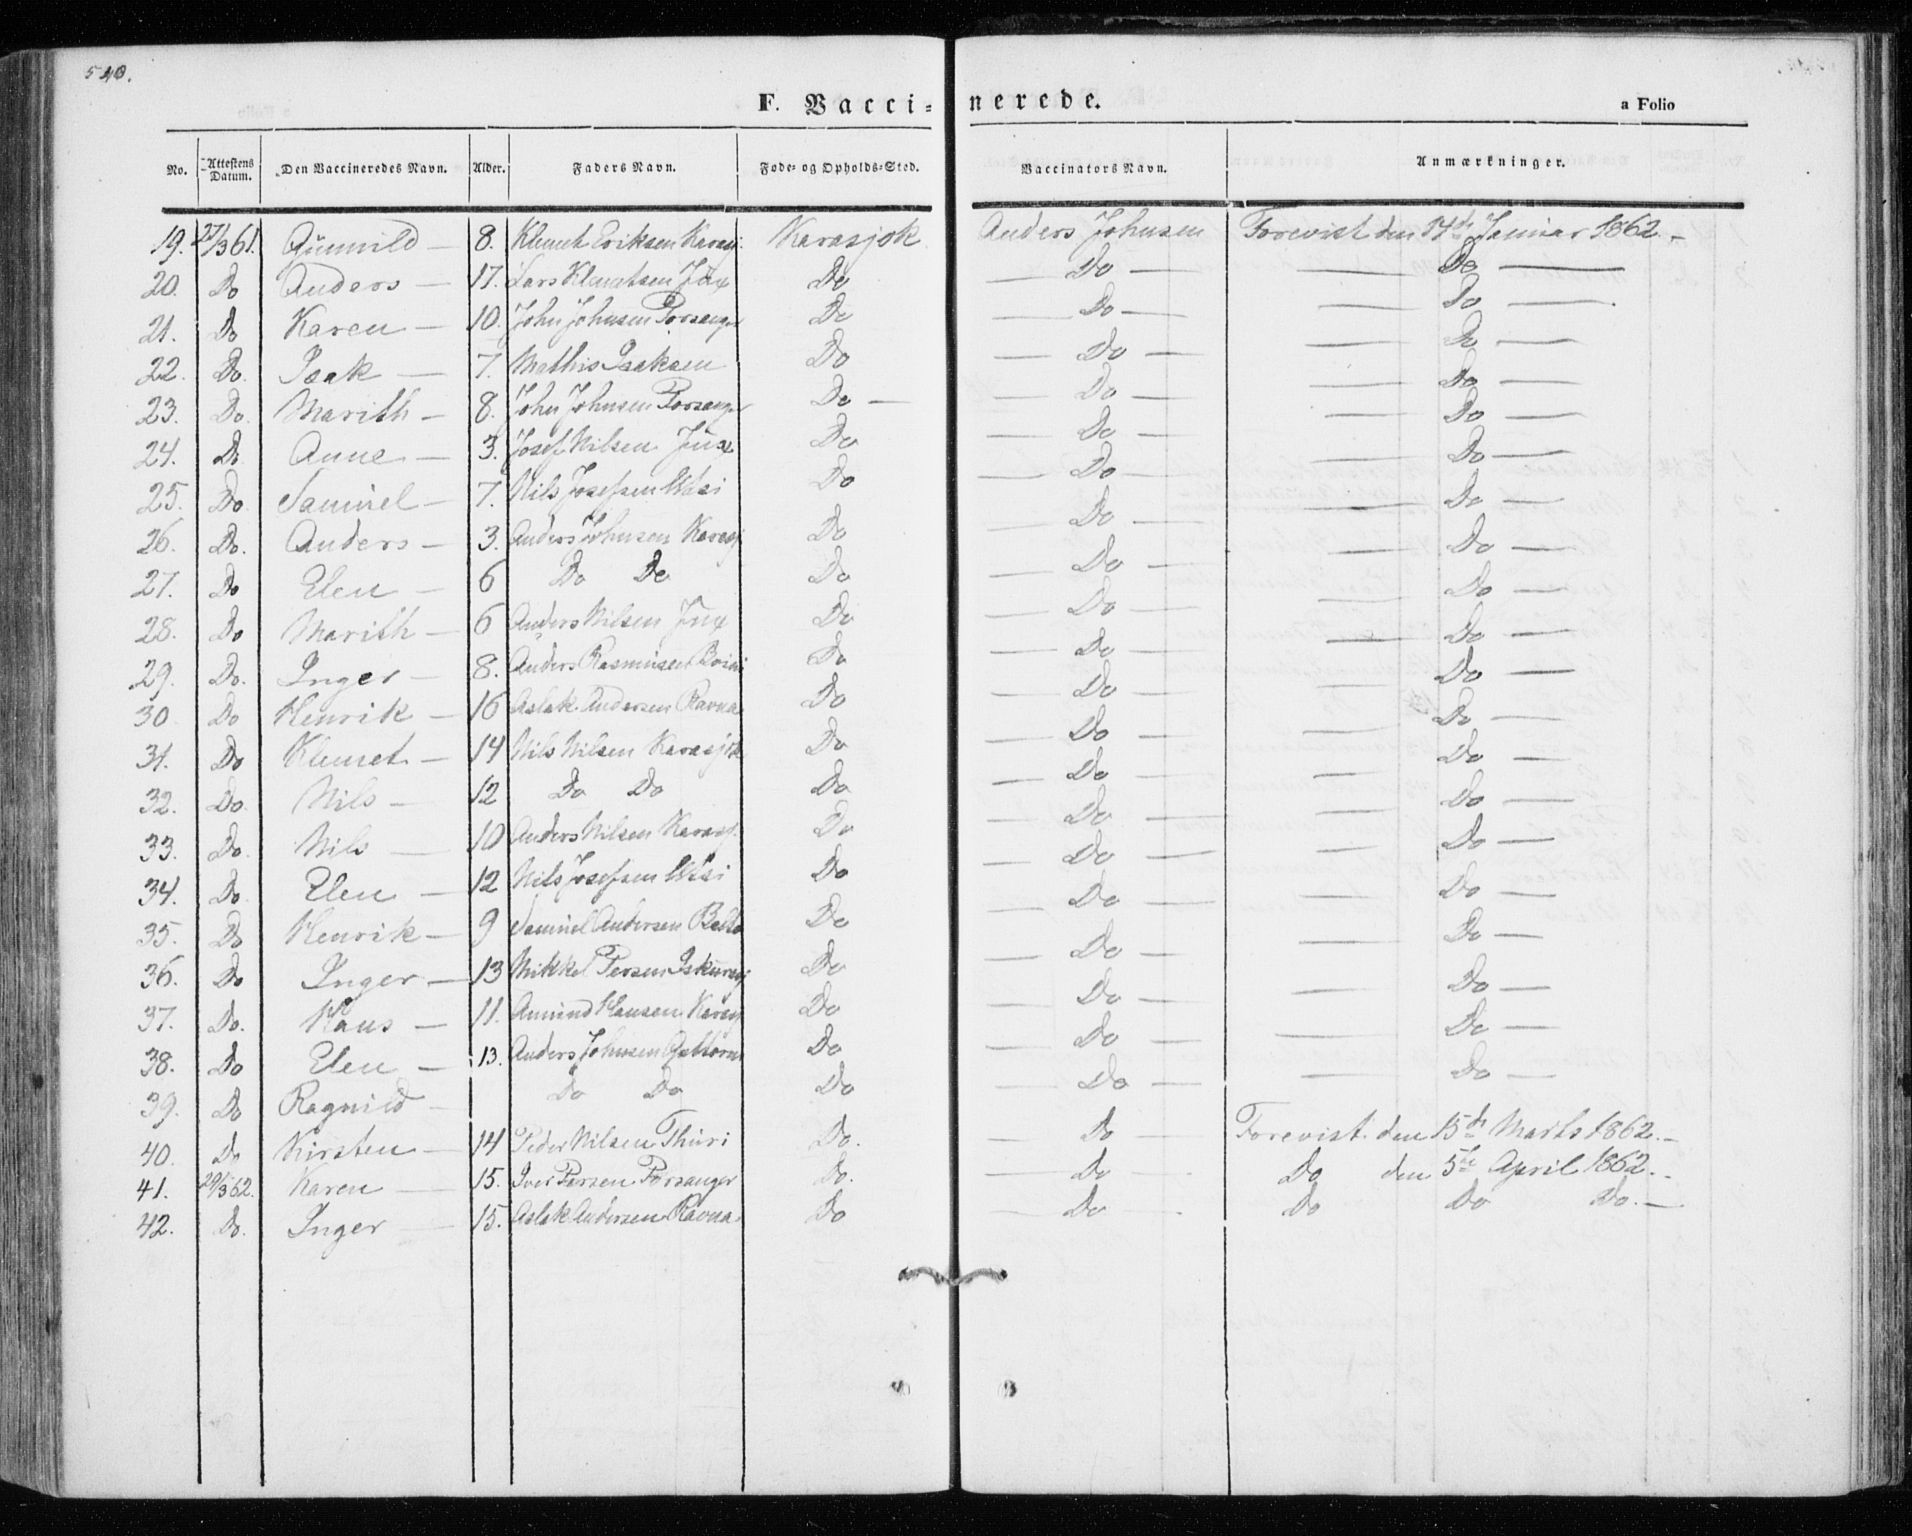 540.
F. Vaccinerede.
a Folio
No. Attestens Datum. Den Vaccineredes Navn. Alder. Faders Navn. Føde- og Opholds-Sted. Vaccinators Navn. Anmærkninger.
19. 27/3 61. Gunnild — 8. Klemet Eriksen Karasj. Karasjok Anders Johnsen Forevist den 14de Januar 1862. —
20. Do Anders — 17. Lars Klemetsen Jux Do — Do — — Do —
21. Do Karen — 10. John Johnsen Porsanger Do — Do — — Do —
22. Do. Isak — 7. Mathis Isaksen Do — Do — — Do —
23. Do. Marith — 8. John Johnsen Porsanger Do — — Do — — Do —
24. Do Anne — 3. Josef Nilsen Jux Do — Do — — Do —
25. Do. Samuel — 7. Nils Josefsen Utsi Do — Do — — Do —
26. Do. Anders — 3. Anders Johnsen Karasj Do — Do — — Do —
27. Do Elen — 6 Do Do Do — Do — — Do —
28. Do Marith — 6 Anders Nilsen Jux Do — Do — — Do —
29. Do. Inger — 8. Anders Rasmusen Do — Do — — Do —
30 Do Henrik — 16 Aslak Andersen Ravna Do — Do — — Do —
31. Do Klemet — 14 Nils Nilsen Karasjok Do — Do — — Do —
32. Do. Nils — 12 Do Do Do — Do — — Do —
33. Do. Nils — 10 Anders Nilsen Karasj. Do — Do — — Do —
34. Do. Elen — 12 Nils Josefsen Utsi Do — Do — — Do —
35. Do Henrik — 9 Samuel Andersen Balto Do — Do — — Do —
36. Do Inger — 13 Mikkel Persen Iskurasj Do — Do — — Do —
37. Do. Hans — 11. Amund Hansen Karasj Do — Do — — Do —
38. Do Elen — 13. Anders Johnsen Do — Do — — Do —
39. Do Ragnild — Do Do Do — Do — — Do —
40. Do Kirsten — 14 Peder Nilsen Thuri Do. — Do — Forevist den 15de Marts 1862. —
41. 29/3 62. Karen — 15. Iver Persen Porsanger Do. — Do — Do den 5te April 1862. —
42. Do. Inger — 15. Aslak Andersen Ravna Do — Do — Do Do Do. —